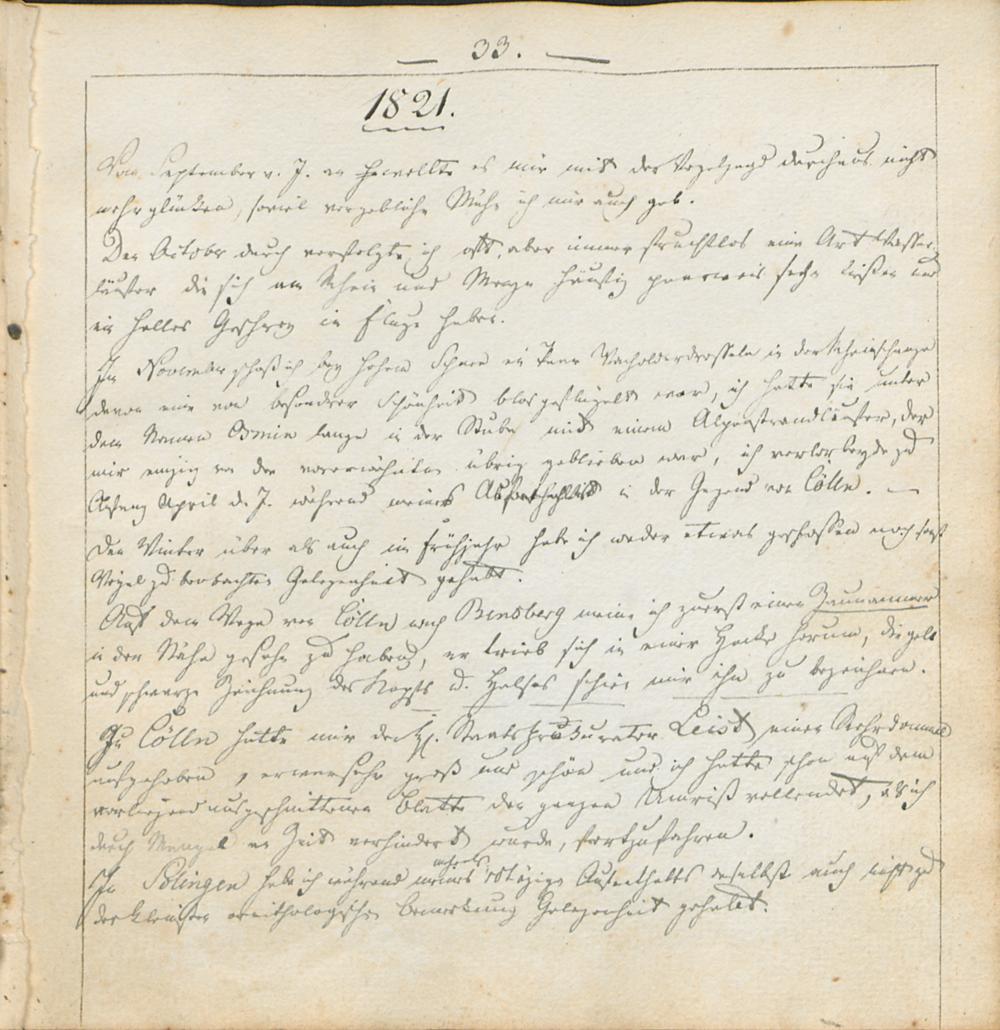 33.
1821.
Von September v. J. an wollte es mir mit der Vogeljagd durchaus nicht
mehr glücken, soviel vergebliche Mühe ich mir auch gab.
Den October durch verfolgte ich oft, aber immer fruchtlos eine Art Wasser-
läufer die sich am Rhein und häufig paarweis sehen ließen und
ein helles Geschrey im Fluge haben.
Im November schoß ich bey hohem Schnee ein Paar Wacholderdrosseln in der Rheinschanze
davon eine von besondrer Schönheit blos geflügelt war, ich hatte sie unter
dem Namen Osmin lange in der Stube mit einem Alpenstrandläufer, der
mir einzig von den vorerwähnten übrig geblieben war, ich verlor beyde zu
Anfang April d. J. während meines Aufenthaltes in der Gegend von Cölln. —
Den Winter über als auch im Frühjahr habe ich weder etwas geschossen noch sonst
Vögel zu beobachten Gelegenheit gehabt.
Auf dem Wege von Cölln nach Bensberg meine ich zuerst einen Zaunammer
in der Nähe gesehn zu haben, er trieb sich in einer Hecke herum, die gelb
und schwarze Zeichnung des Kopfs u. Halses schien mir ihn zu bezeichnen.
In Cölln hatte mir der H. Staatsprokurator Leist einen Rohrdommel
aufgehoben, er war sehr groß und schön und ich hatte schon auf dem
vorliegend ausgeschnittenen Blatte den ganzen Umriß vollendet, als ich
durch Mangel an Zeit verhindert wurde, fortzufahren.
In Solingen habe ich während meines Aufenthalts daselbst auch nicht zu
der kleinsten ornithologischen Bemerkung Gelegenheit gehabt.